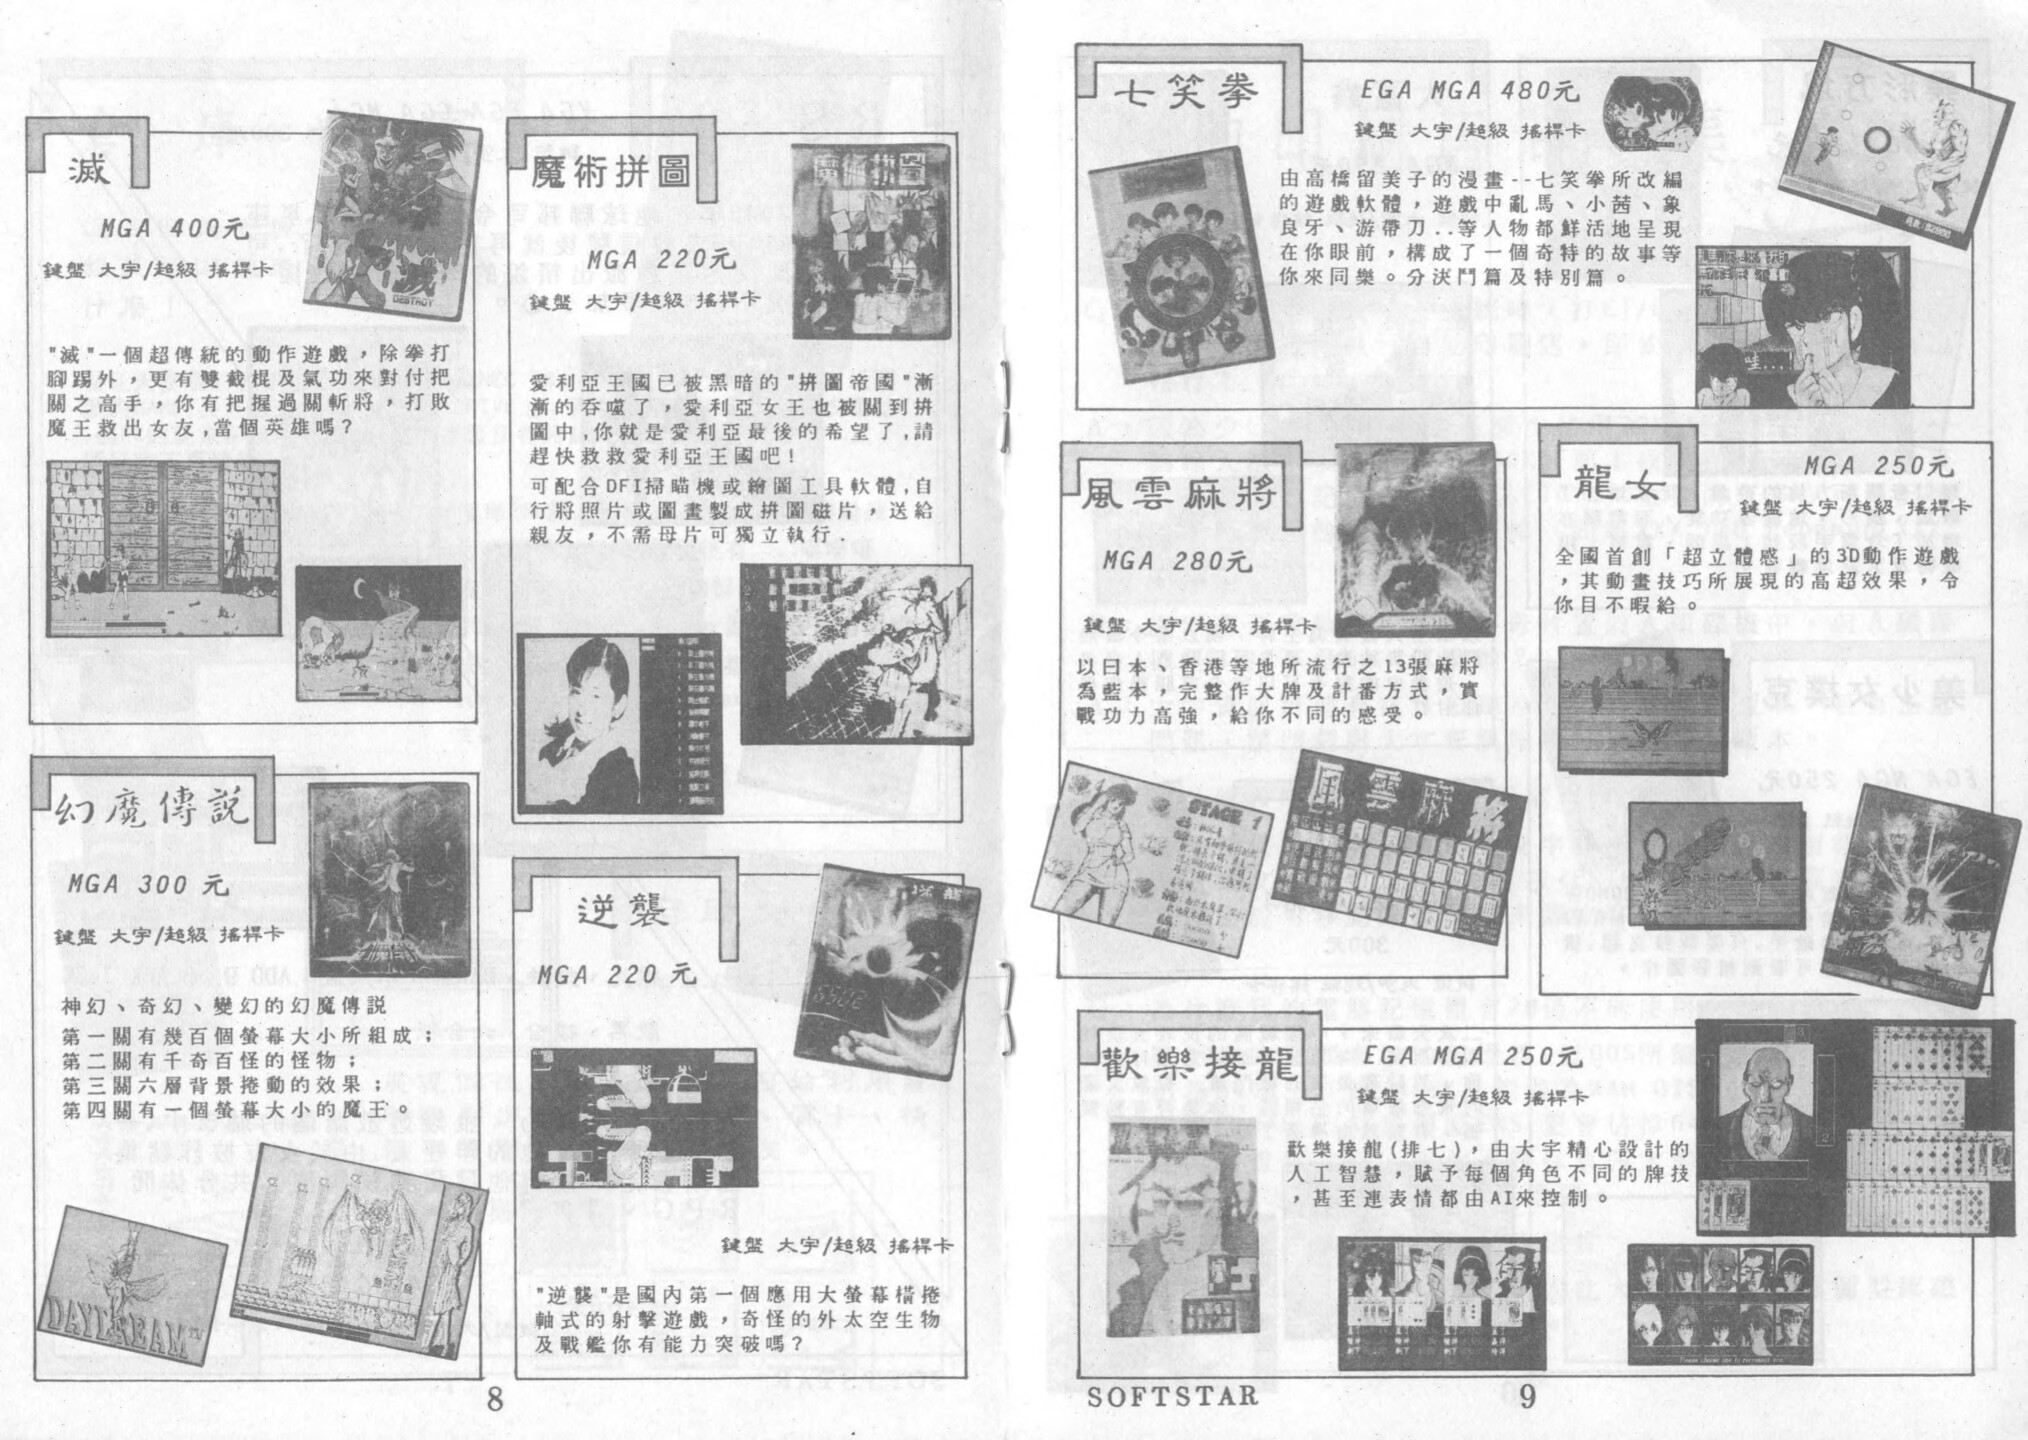 滅
MGA 400元
鍵盤 大宇/超級 搖桿卡
"滅"一個超傳統的動作遊戲，除拳打
腳踢外，更有雙截棍及氣功來對付把
關之高手，你有把握過關斬將，打敗
魔王救出女友,當個英雄嗎？
DESTROY
魔術拼圖
MGA 220元
鍵盤 大宇/超級 搖桿卡
愛利亞王國已被黑暗的"拼圖帝國"漸
漸的吞噬了，愛利亞女王也被關到拼
圖中,你就是愛利亞最後的希望了,請
趕快救救愛利亞王國吧!
可配合DFI掃瞄機或繪圖工具軟體,自
行將照片或圖畫製成拼圖磁片，送給
親友，不需母片可獨立執行.
幻魔傳説
MGA 300 元
鍵盤 大宇/超級 搖桿卡
神幻、奇幻、變幻的幻魔傳説
第一關有幾百個螢幕大小所組成；
第二關有千奇百怪的怪物；
第三關六層背景捲動的效果；
第四關有一個螢幕大小的魔王。
DAYDREAM
逆襲
MGA 220 元
鍵盤 大宇/超級 搖桿卡
"逆襲"是國內第一個應用大螢幕橫捲
軸式的射擊遊戲，奇怪的外太空生物
及戰艦你有能力突破嗎？
8
七笑拳
EGA MGA 480元
鍵盤 大宇/超級 搖桿卡
由高橋留美子的漫畫--七笑拳所改編
的遊戲軟體，遊戲中亂馬、小茜、象
良牙、游帶刀..等人物都鮮活地呈現
在你眼前，構成了一個奇特的故事等
你來同樂。分決鬥篇及特別篇。
哇...!
風雲麻將
MGA 280元
鍵盤 大宇/超級 搖桿卡
以日本、香港等地所流行之13張麻將
為藍本，完整作大牌及計番方式，實
戰功力高強，給你不同的感受。
STAGE 1
風雲麻將
龍女
MGA 250元
鍵盤 大宇/超級 搖桿卡
全國首創「超立體感」的3D動作遊戲
，其動畫技巧所展現的高超效果，令
你目不暇給。
歡樂接龍
EGA MGA 250元
鍵盤 大宇/超級 搖桿卡
歡樂接龍(排七)，由大宇精心設計的
人工智慧，賦予每個角色不同的牌技
，甚至連表情都由AI來控制。
SOFTSTAR
9